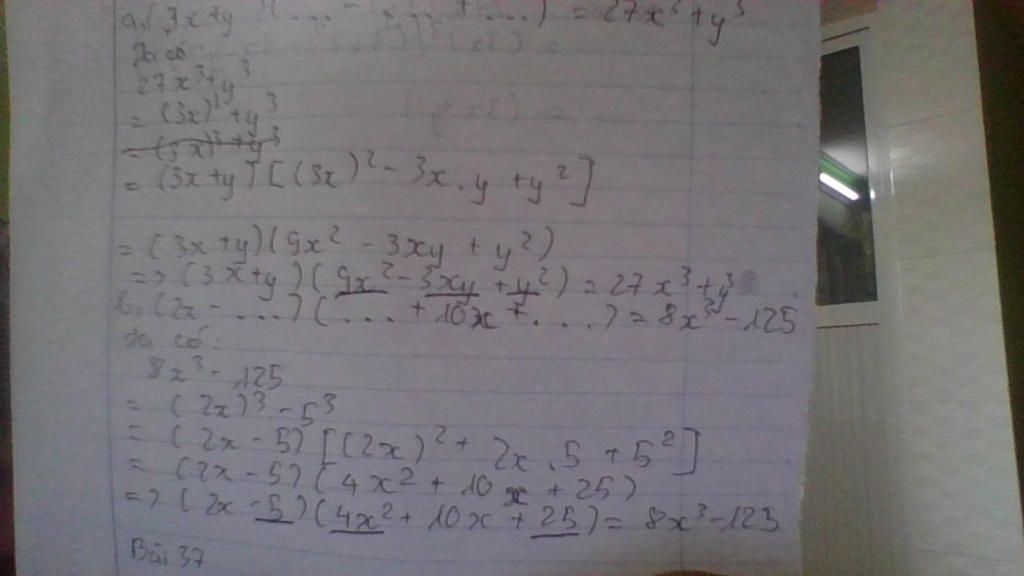 a, (3x+y)(... - ... + ...) = 27x³+y³
Ta có:
27x³+y³
= (3x)³+y³
= (3x)³+y³
= (3x+y)[(3x)² - 3x.y +y²]
= (3x+y)(9x² - 3xy + y²)
=> (3x+y)(9x² - 3xy + y²) = 27x³+y³
b. (2x - ...)(... + 10x + ...) = 8x³ - 125
Ta có:
8x³ - 125
= (2x)³ - 5³
= (2x - 5)[(2x)² + 2x.5 + 5²]
= (2x - 5)(4x² + 10x + 25)
=> (2x - 5)(4x² + 10x + 25) = 8x³ - 125
Bài 37